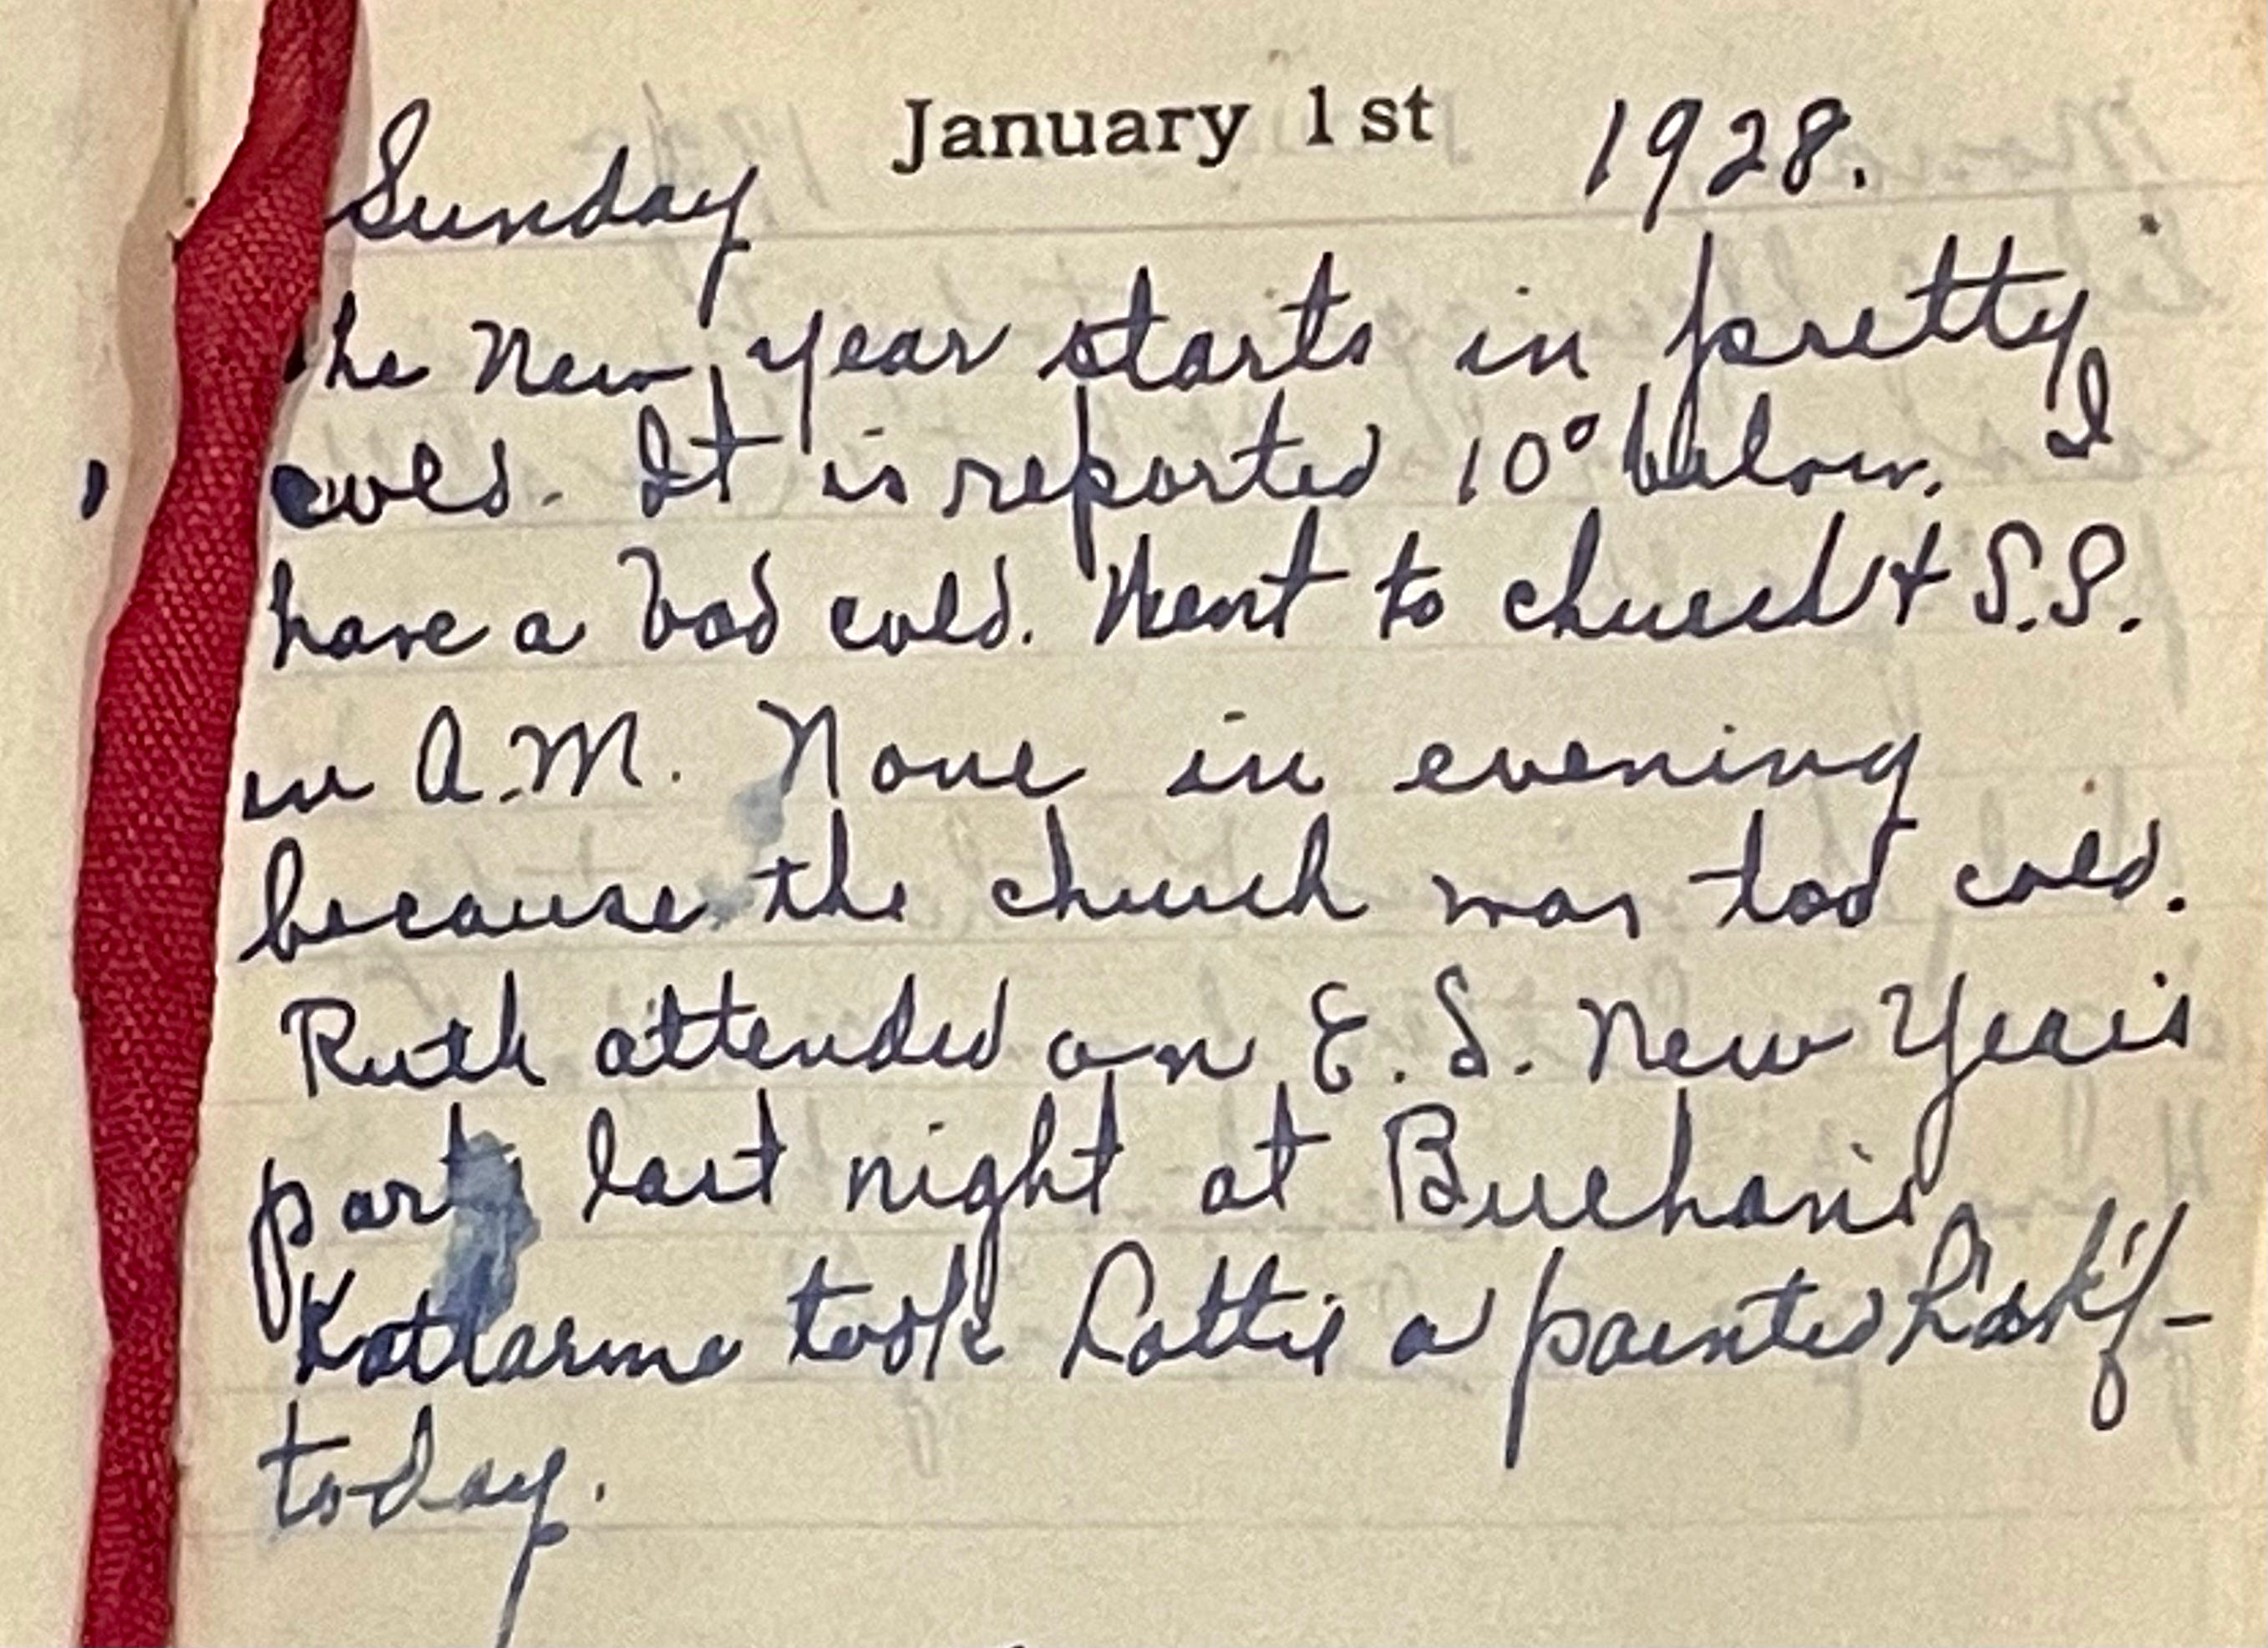 January 1st 1928.
Sunday
he New year starts in pretty
cold. It is reported 10° below. I
have a bad cold. Went to church & S.S.
in A.M. None in evening
because the church was too cold.
Ruth attended an E. S. New Year's
party last night at Buchan's
Katharine took Lottie a painted h'dk'f-
today.